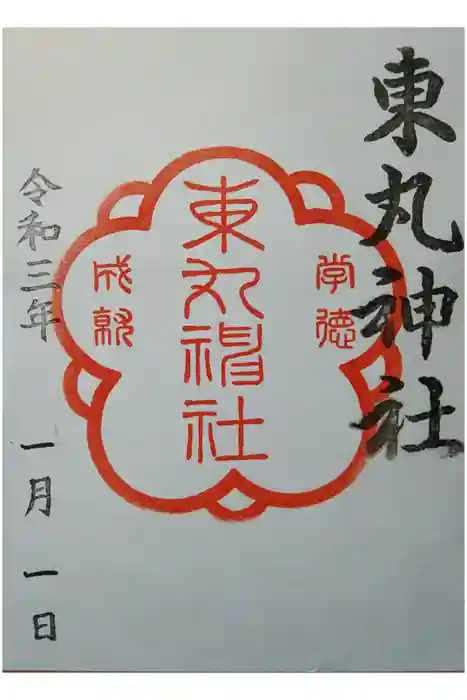 東丸神社
学徳
東丸神社
成就
令和三年 一月 一日